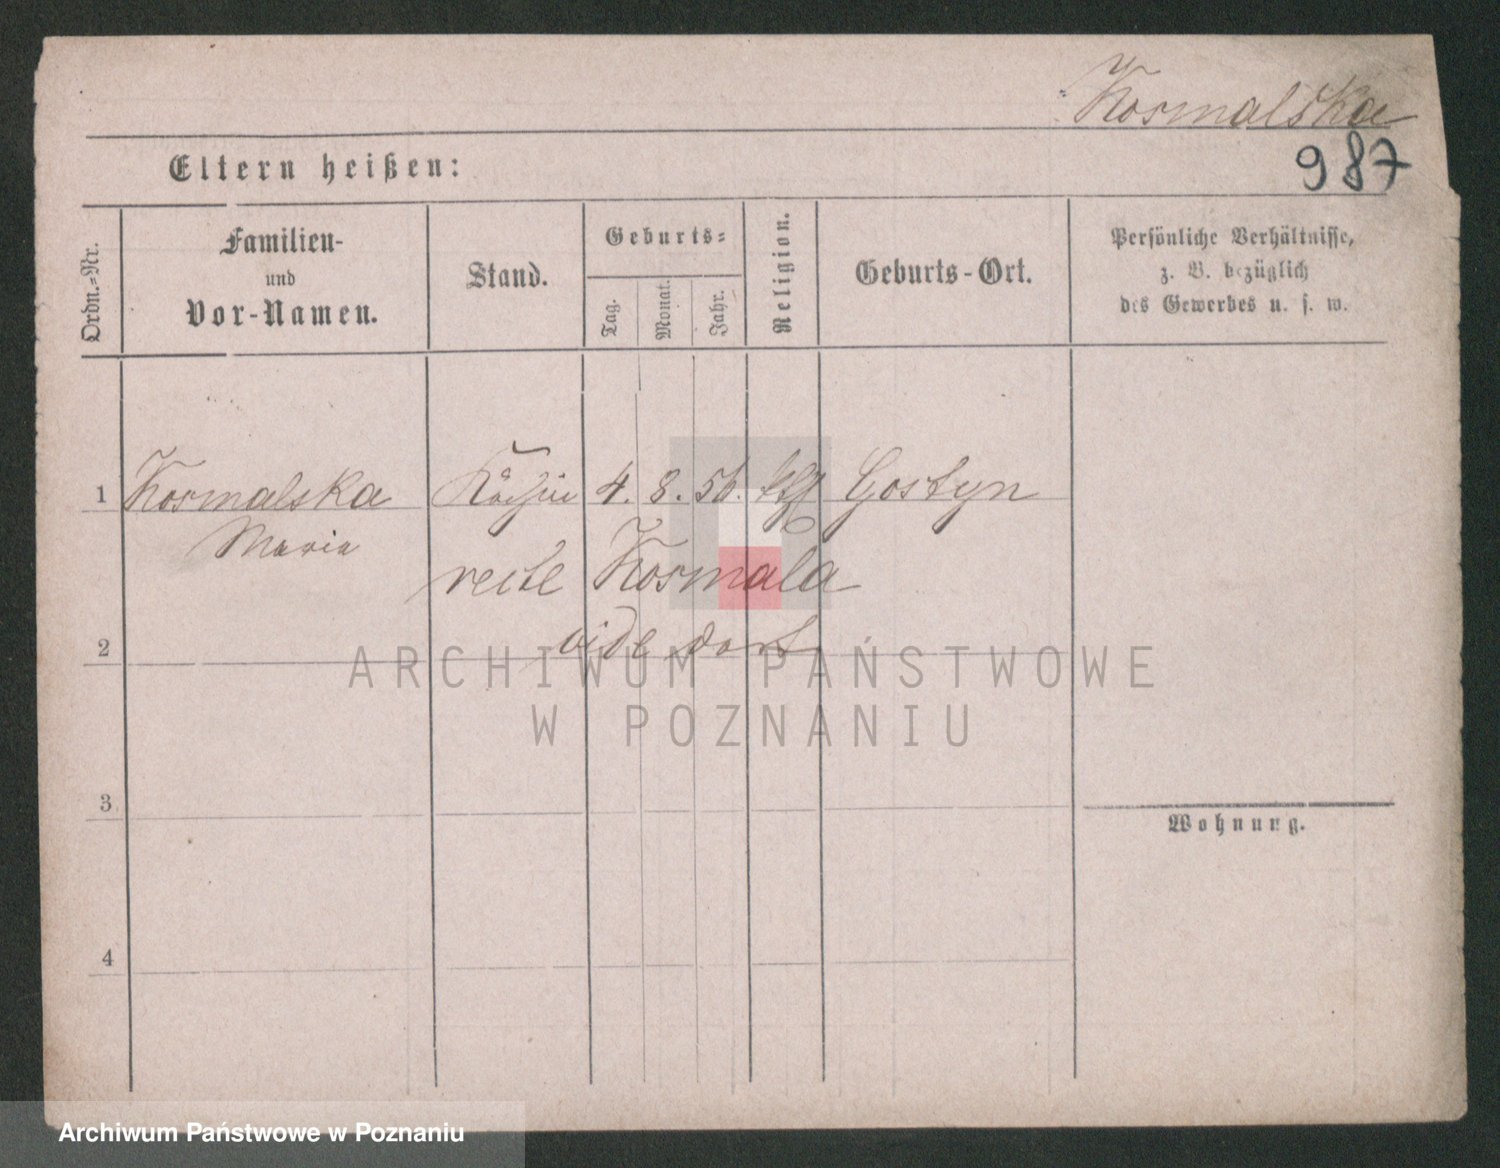 Kosmalska
987
Eltern heißen:
Ordn.-Nr.
Familien-
und
Vor-Namen.
Stand.
Geburts-
Tag.
Monat.
Jahr.
Religion.
Geburts-Ort.
Persönliche Verhältnisse,
z. B. bezüglich
des Gewerbes u. s. w.
1 Kosmalska Köchin 4. 8. 56. kth Gostyn
Maria
recte Kosmala
2 vide dort
ARCHIWUM PAŃSTWOWE
W POZNANIU
3
Wohnung.
4
Archiwum Państwowe w Poznaniu